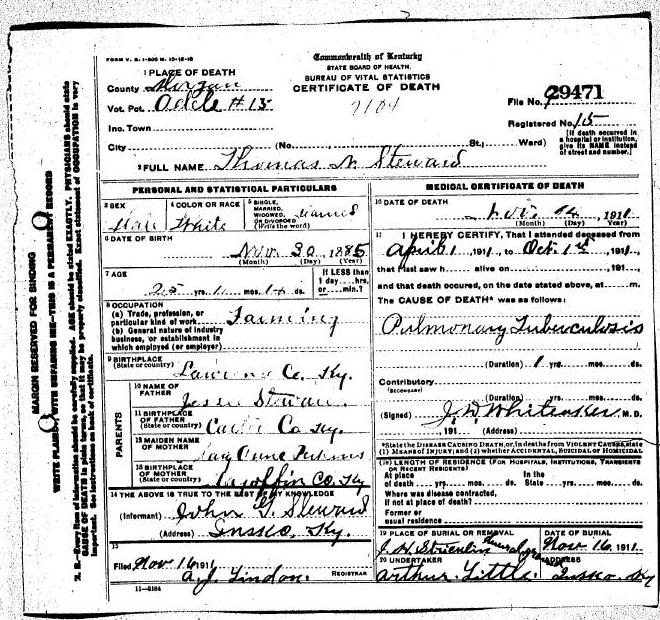 FORM V. S. 1-500 M. 12-15-10
Commonwealth of Kentucky
STATE BOARD OF HEALTH.
BUREAU OF VITAL STATISTICS
CERTIFICATE OF DEATH
1 PLACE OF DEATH
County Morgan
Vot. Pct. Adele #15
Inc. Town
City (No. St.; Ward)
2104
File No. 29471
Registered No. 15
[If death occurred in a hospital or institution, give its NAME instead of street and number.]
2 FULL NAME Thomas N. Steward
PERSONAL AND STATISTICAL PARTICULARS
3 SEX
Male
4 COLOR OR RACE
White
5 SINGLE, MARRIED, WIDOWED, OR DIVORCED (Write the word)
Married
6 DATE OF BIRTH
Nov. 30, 1885
(Month) (Day) (Year)
7 AGE
25 yrs. 11 mos. 14 ds.
If LESS than 1 day....hrs. or....min.?
8 OCCUPATION
(a) Trade, profession, or particular kind of work Farming
(b) General nature of industry business, or establishment in which employed (or employer)
9 BIRTHPLACE
(State or country) Lawrence Co. Ky.
PARENTS
10 NAME OF FATHER
Jesse Steward
11 BIRTHPLACE OF FATHER
(State or country) Carter Co Ky.
12 MAIDEN NAME OF MOTHER
Mary Anne
13 BIRTHPLACE OF MOTHER
(State or country) Magoffin Co. Ky
14 THE ABOVE IS TRUE TO THE BEST OF MY KNOWLEDGE
(Informant) John G. Steward
(Address) Insko, Ky.
15
Filed Nov 16 1911
A. J. Lindon. REGISTRAR
11-3184
MEDICAL CERTIFICATE OF DEATH
16 DATE OF DEATH
Nov. 14, 1911
(Month) (Day) (Year)
17 I HEREBY CERTIFY, That I attended deceased from
April 1, 1911, to Oct. 1st, 1911,
that I last saw h alive on , 191 ,
and that death occurred, on the date stated above, at m.
The CAUSE OF DEATH* was as follows:
Pulmonary Tuberculosis
(Duration) 1 yrs. mos. ds.
Contributory
(SECONDARY)
(Duration) yrs. mos. ds.
(Signed) J. D. Whiteaker M. D.
, 191 (Address)
*State the DISEASE CAUSING DEATH, or, in deaths from VIOLENT CAUSES, state
(1) MEANS OF INJURY; and (2) whether ACCIDENTAL, SUICIDAL or HOMICIDAL
(18) LENGTH OF RESIDENCE (FOR HOSPITALS, INSTITUTIONS, TRANSIENTS OR RECENT RESIDENTS)
At place of death yrs. mos. ds. In the State yrs. mos. ds.
Where was disease contracted,
if not at place of death?
Former or
usual residence
19 PLACE OF BURIAL OR REMOVAL
J. H. Stricklin
DATE OF BURIAL
Nov. 16, 1911
20 UNDERTAKER
Arthur Little
ADDRESS
Insko, Ky
MARGIN RESERVED FOR BINDING
WRITE PLAINLY, WITH UNFADING INK—THIS IS A PERMANENT RECORD
N. B.—Every item of information should be carefully supplied. AGE should be stated EXACTLY. PHYSICIANS should state
CAUSE OF DEATH in plain terms, so that it may be properly classified. Exact statement of OCCUPATION is very
important. See instructions on back of certificate.